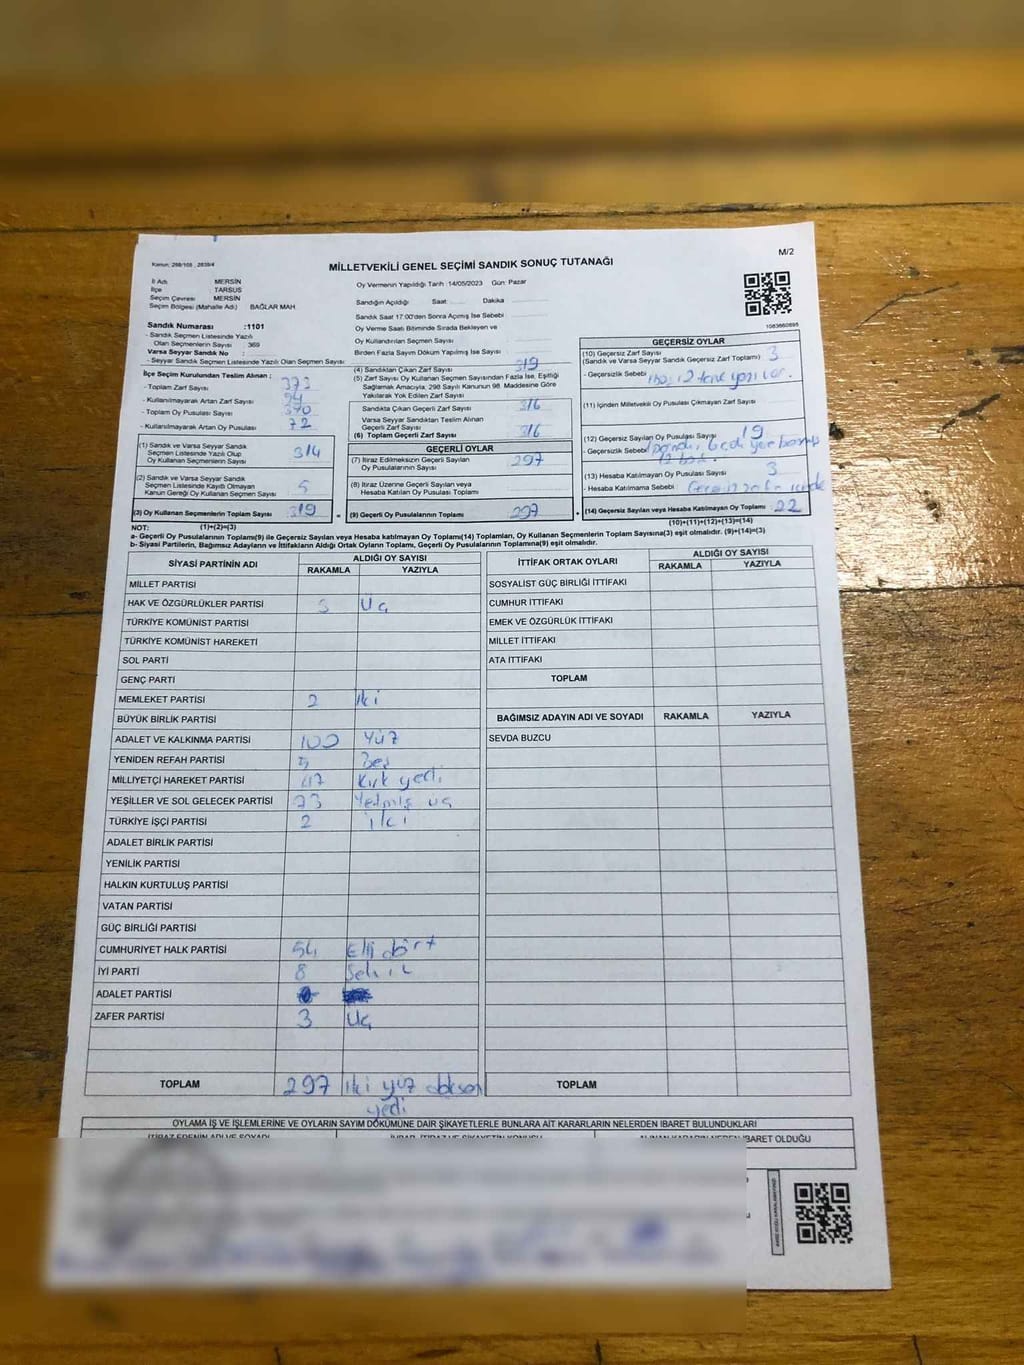 M/2
Kanun: 298/105 , 2839/4
MİLLETVEKİLİ GENEL SEÇİMİ SANDIK SONUÇ TUTANAĞI
İl Adı MERSİN
İlçe TARSUS
Seçim Çevresi MERSİN
Seçim Bölgesi (Mahalle Adı) BAĞLAR MAH
Oy Vermenin Yapıldığı Tarih :14/05/2023 Gün: Pazar
Sandığın Açıldığı Saat: Dakika
Sandık Saat 17:00'den Sonra Açımış İse Sebebi
Oy Verme Saati Bitiminde Sırada Bekleyen ve
Oy Kullandırılan Seçmen Sayısı
Birden Fazla Sayım Döküm Yapılmış İse Sayısı
Sandık Numarası :1101
- Sandık Seçmen Listesinde Yazılı
Olan Seçmenlerin Sayısı 369
Varsa Seyyar Sandık No :
- Seyyar Sandık Seçmen Listesinde Yazılı Olan Seçmen Sayısı:
İlçe Seçim Kurulundan Teslim Alınan :
- Toplam Zarf Sayısı 373
- Kullanılmayarak Artan Zarf Sayısı 54
- Toplam Oy Pusulası Sayısı 370
- Kullanılmayarak Artan Oy Pusulası 72
(1) Sandık ve Varsa Seyyar Sandık
Seçmen Listesinde Yazılı Olup
Oy Kullanan Seçmenlerin Sayısı 314
(2) Sandık ve Varsa Seyyar Sandık
Seçmen Listesinde Kayıtlı Olmayan
Kanun Gereği Oy Kullanan Seçmen Sayısı 5
(3) Oy Kullanan Seçmenlerin Toplam Sayısı 319
(4) Sandıktan Çıkan Zarf Sayısı 319
(5) Zarf Sayısı Oy Kullanan Seçmen Sayısından Fazla İse, Eşitliği
Sağlamak Amacıyla, 298 Sayılı Kanunun 98. Maddesine Göre
Yakılarak Yok Edilen Zarf Sayısı
Sandıkta Çıkan Geçerli Zarf Sayısı 316
Varsa Seyyar Sandıktan Teslim Alınan
Geçerli Zarf Sayısı
(6) Toplam Geçerli Zarf Sayısı 316
GEÇERLİ OYLAR
(7) İtiraz Edilmeksizin Geçerli Sayılan
Oy Pusulalarının Sayısı 297
(8) İtiraz Üzerine Geçerli Sayılan veya
Hesaba Katılan Oy Pusulası Toplamı
(9) Geçerli Oy Pusulalarının Toplamı 297
1083660895
GEÇERSİZ OYLAR
(10) Geçersiz Zarf Sayısı
(Sandık ve Varsa Seyyar Sandık Geçersiz Zarf Toplamı) 3
- Geçersizlik Sebebi
(11) İçinden Milletvekili Oy Pusulası Çıkmayan Zarf Sayısı
(12) Geçersiz Sayılan Oy Pusulası Sayısı 19
- Geçersizlik Sebebi
(13) Hesaba Katılmayan Oy Pusulası Sayısı 3
- Hesaba Katılmama Sebebi :
(14) Geçersiz Sayılan veya Hesaba Katılmayan Oy Toplamı 22
(10)+(11)+(12)+(13)=(14)
NOT: (1)+(2)=(3)
a- Geçerli Oy Pusulalarının Toplamı(9) ile Geçersiz Sayılan veya Hesaba katılmayan Oy Toplamı(14) Toplamları, Oy Kullanan Seçmenlerin Toplam Sayısına(3) eşit olmalıdır. (9)+(14)=(3)
b- Siyasi Partilerin, Bağımsız Adayların ve İttifakların Aldığı Ortak Oyların Toplamı, Geçerli Oy Pusulalarının Toplamına(9) eşit olmalıdır.
SİYASİ PARTİNİN ADI ALDIĞI OY SAYISI
RAKAMLA YAZIYLA
MİLLET PARTİSİ
HAK VE ÖZGÜRLÜKLER PARTİSİ 3 Üç
TÜRKİYE KOMÜNİST PARTİSİ
TÜRKİYE KOMÜNİST HAREKETİ
SOL PARTİ
GENÇ PARTİ
MEMLEKET PARTİSİ 2 iki
BÜYÜK BİRLİK PARTİSİ
ADALET VE KALKINMA PARTİSİ 100 Yüz
YENİDEN REFAH PARTİSİ 5 Beş
MİLLİYETÇİ HAREKET PARTİSİ 47 Kırk yedi
YEŞİLLER VE SOL GELECEK PARTİSİ 73 Yetmiş üç
TÜRKİYE İŞÇİ PARTİSİ 2 iki
ADALET BİRLİK PARTİSİ
YENİLİK PARTİSİ
HALKIN KURTULUŞ PARTİSİ
VATAN PARTİSİ
GÜÇ BİRLİĞİ PARTİSİ
CUMHURİYET HALK PARTİSİ 54 Elli dört
İYİ PARTİ 8 Sekiz
ADALET PARTİSİ
ZAFER PARTİSİ 3 Üç
TOPLAM 297 iki yüz doksan
yedi
İTTİFAK ORTAK OYLARI ALDIĞI OY SAYISI
RAKAMLA YAZIYLA
SOSYALIST GÜÇ BİRLİĞİ İTTİFAKI
CUMHUR İTTİFAKI
EMEK VE ÖZGÜRLÜK İTTİFAKI
MİLLET İTTİFAKI
ATA İTTİFAKI
TOPLAM
BAĞIMSIZ ADAYIN ADI VE SOYADI RAKAMLA YAZIYLA
SEVDA BUZCU
TOPLAM
OYLAMA İŞ VE İŞLEMLERİNE VE OYLARIN SAYIM DÖKÜMÜNE DAİR ŞİKAYETLERLE BUNLARA AİT KARARLARIN NELERDEN İBARET BULUNDUKLARI